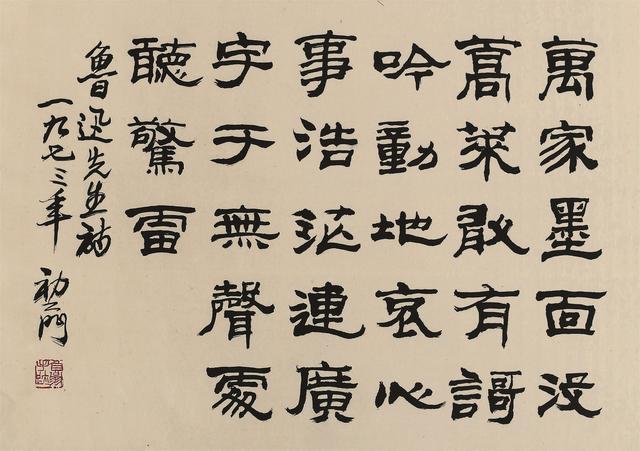 萬家墨面没
蒿萊敢有謌
吟動地哀心
事浩茫連廣
宇于無聲處
聽驚雷
魯迅先生詩
一九七三年